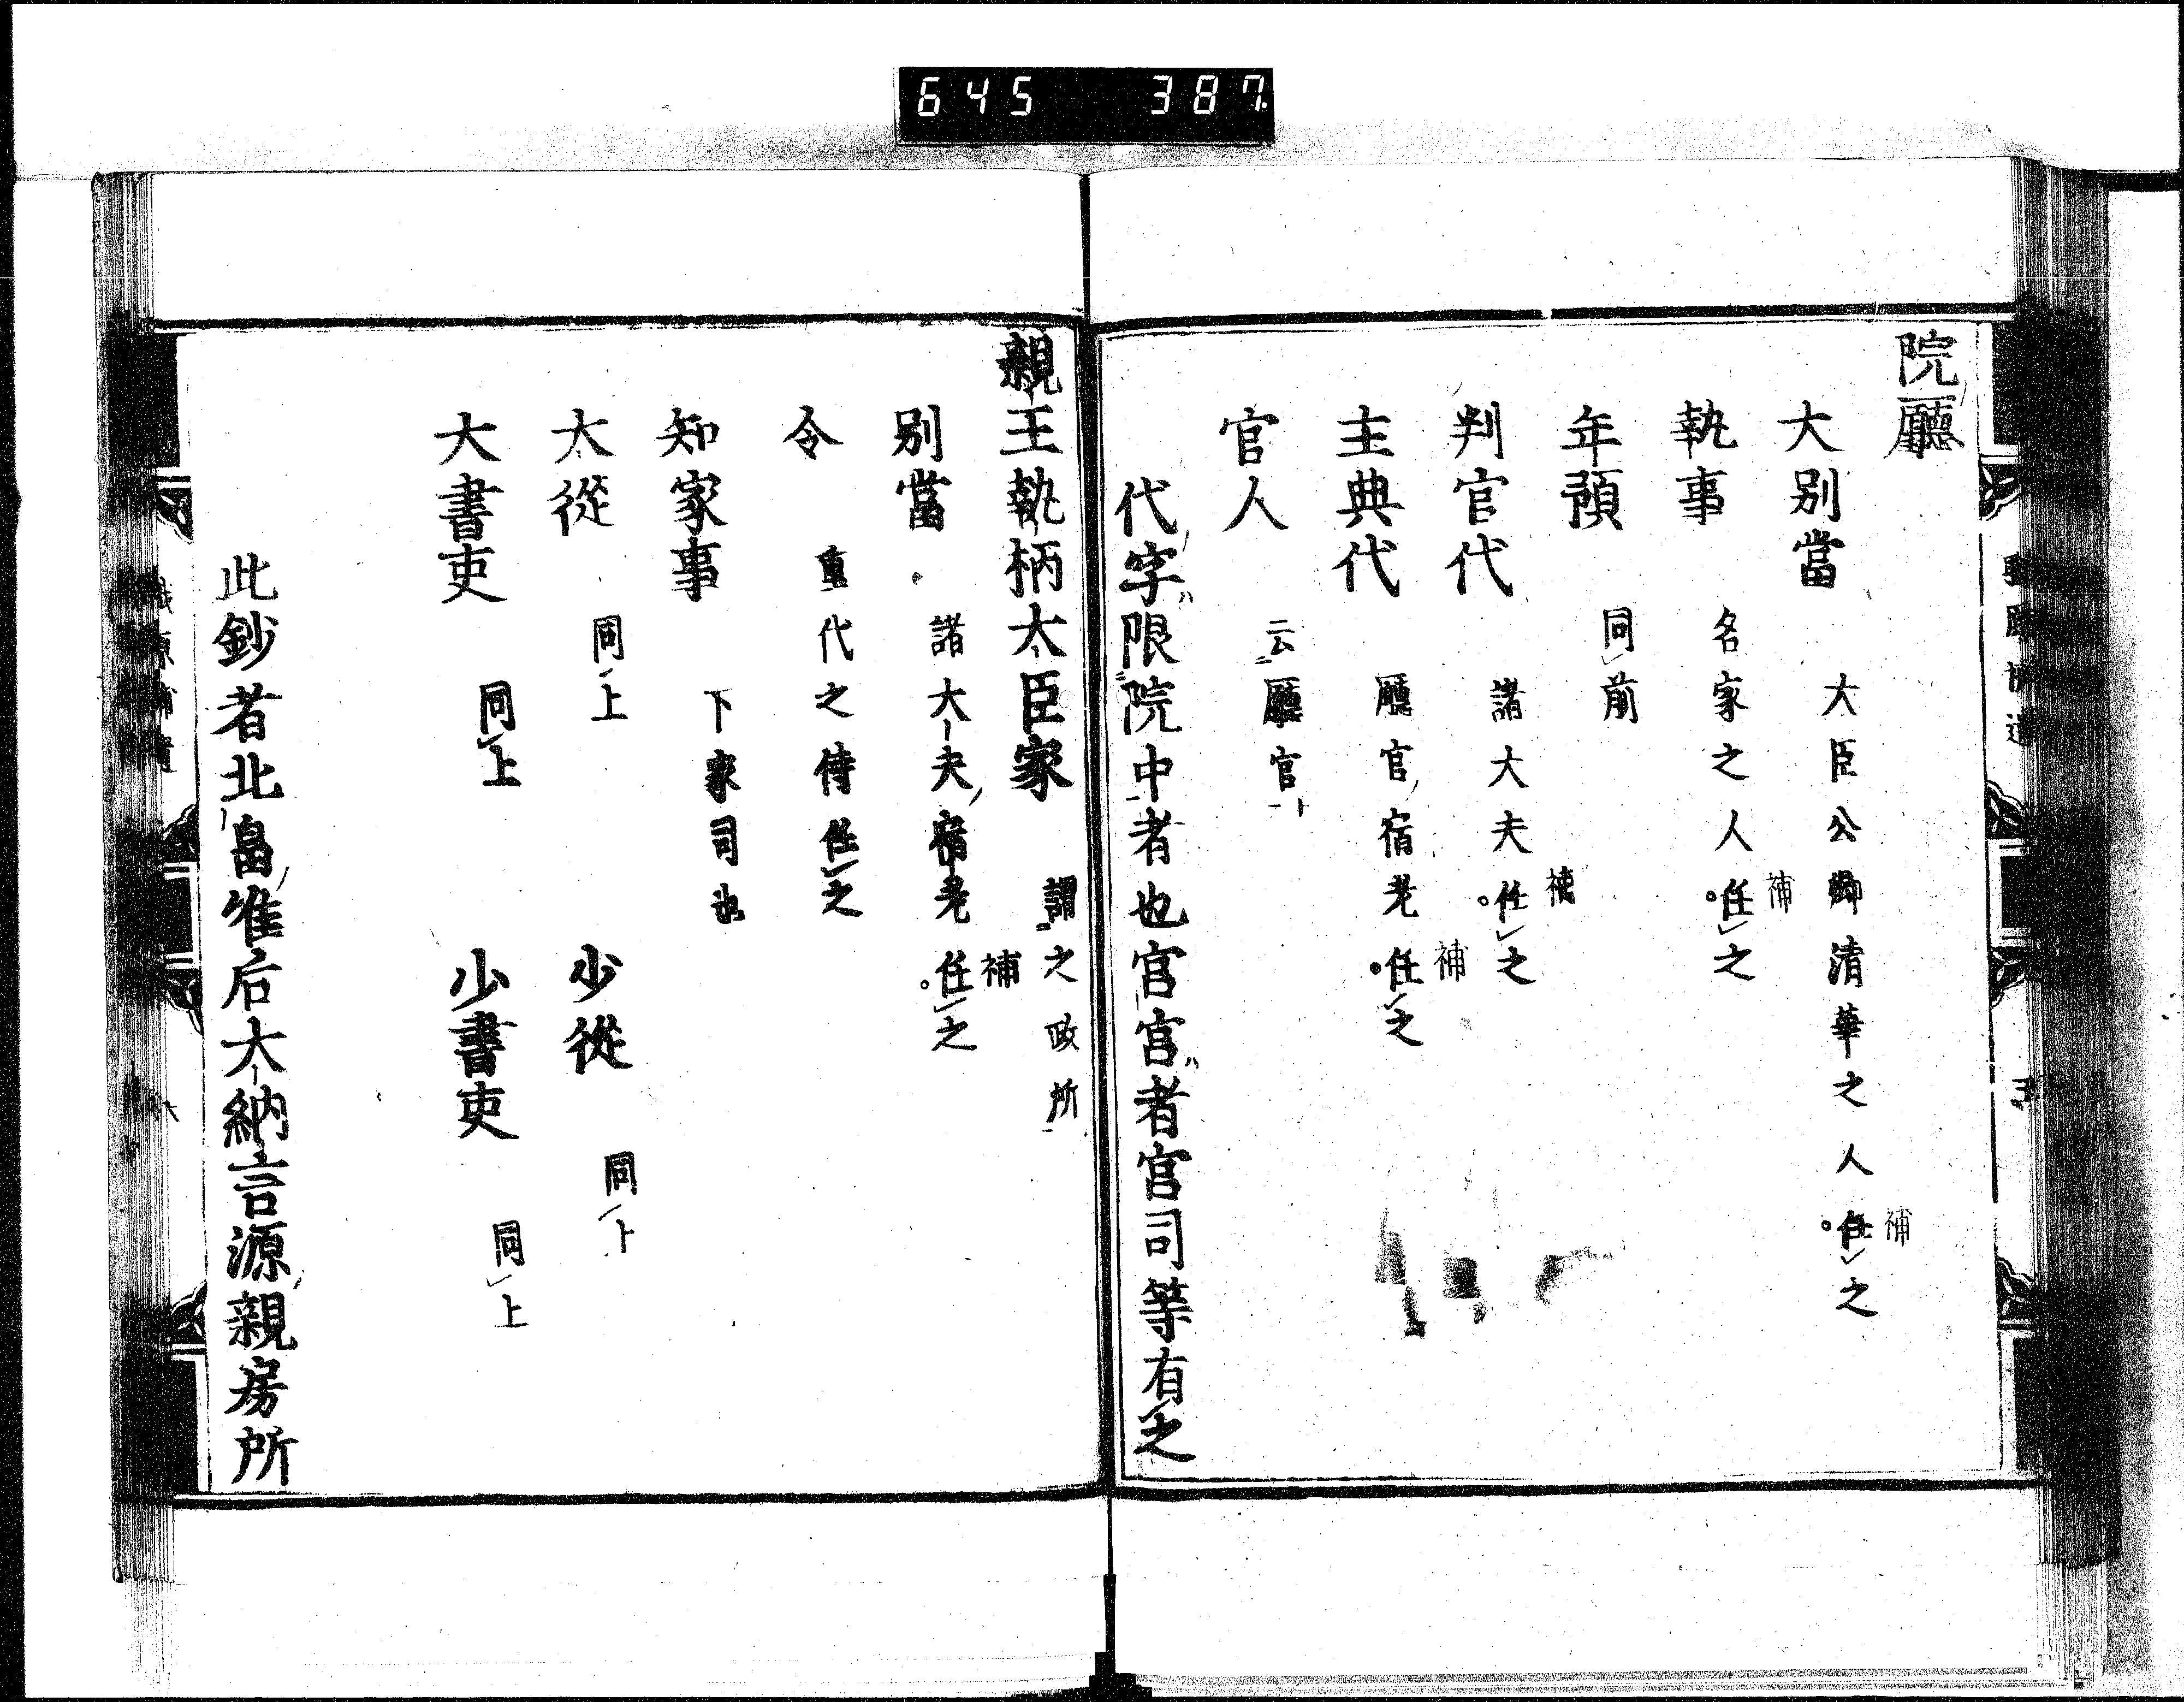 645 387
院廳
大別當 大臣公卿清華之人任之 補
執事 名家之人任之 補
年預 同前
判官代 諸大夫任之 補
主典代 廳官宿老任之 補
官人 云廳官
代字限院中者也官宮者宮司等有之
親王執柄大臣家 謂之政所
別當 諸大夫宿老任之 補
令 重代之侍任之
知家事 下家司也
大從 同上 少從 同上
大書吏 同上 少書吏 同上
此鈔者北畠准后大納言源親房所